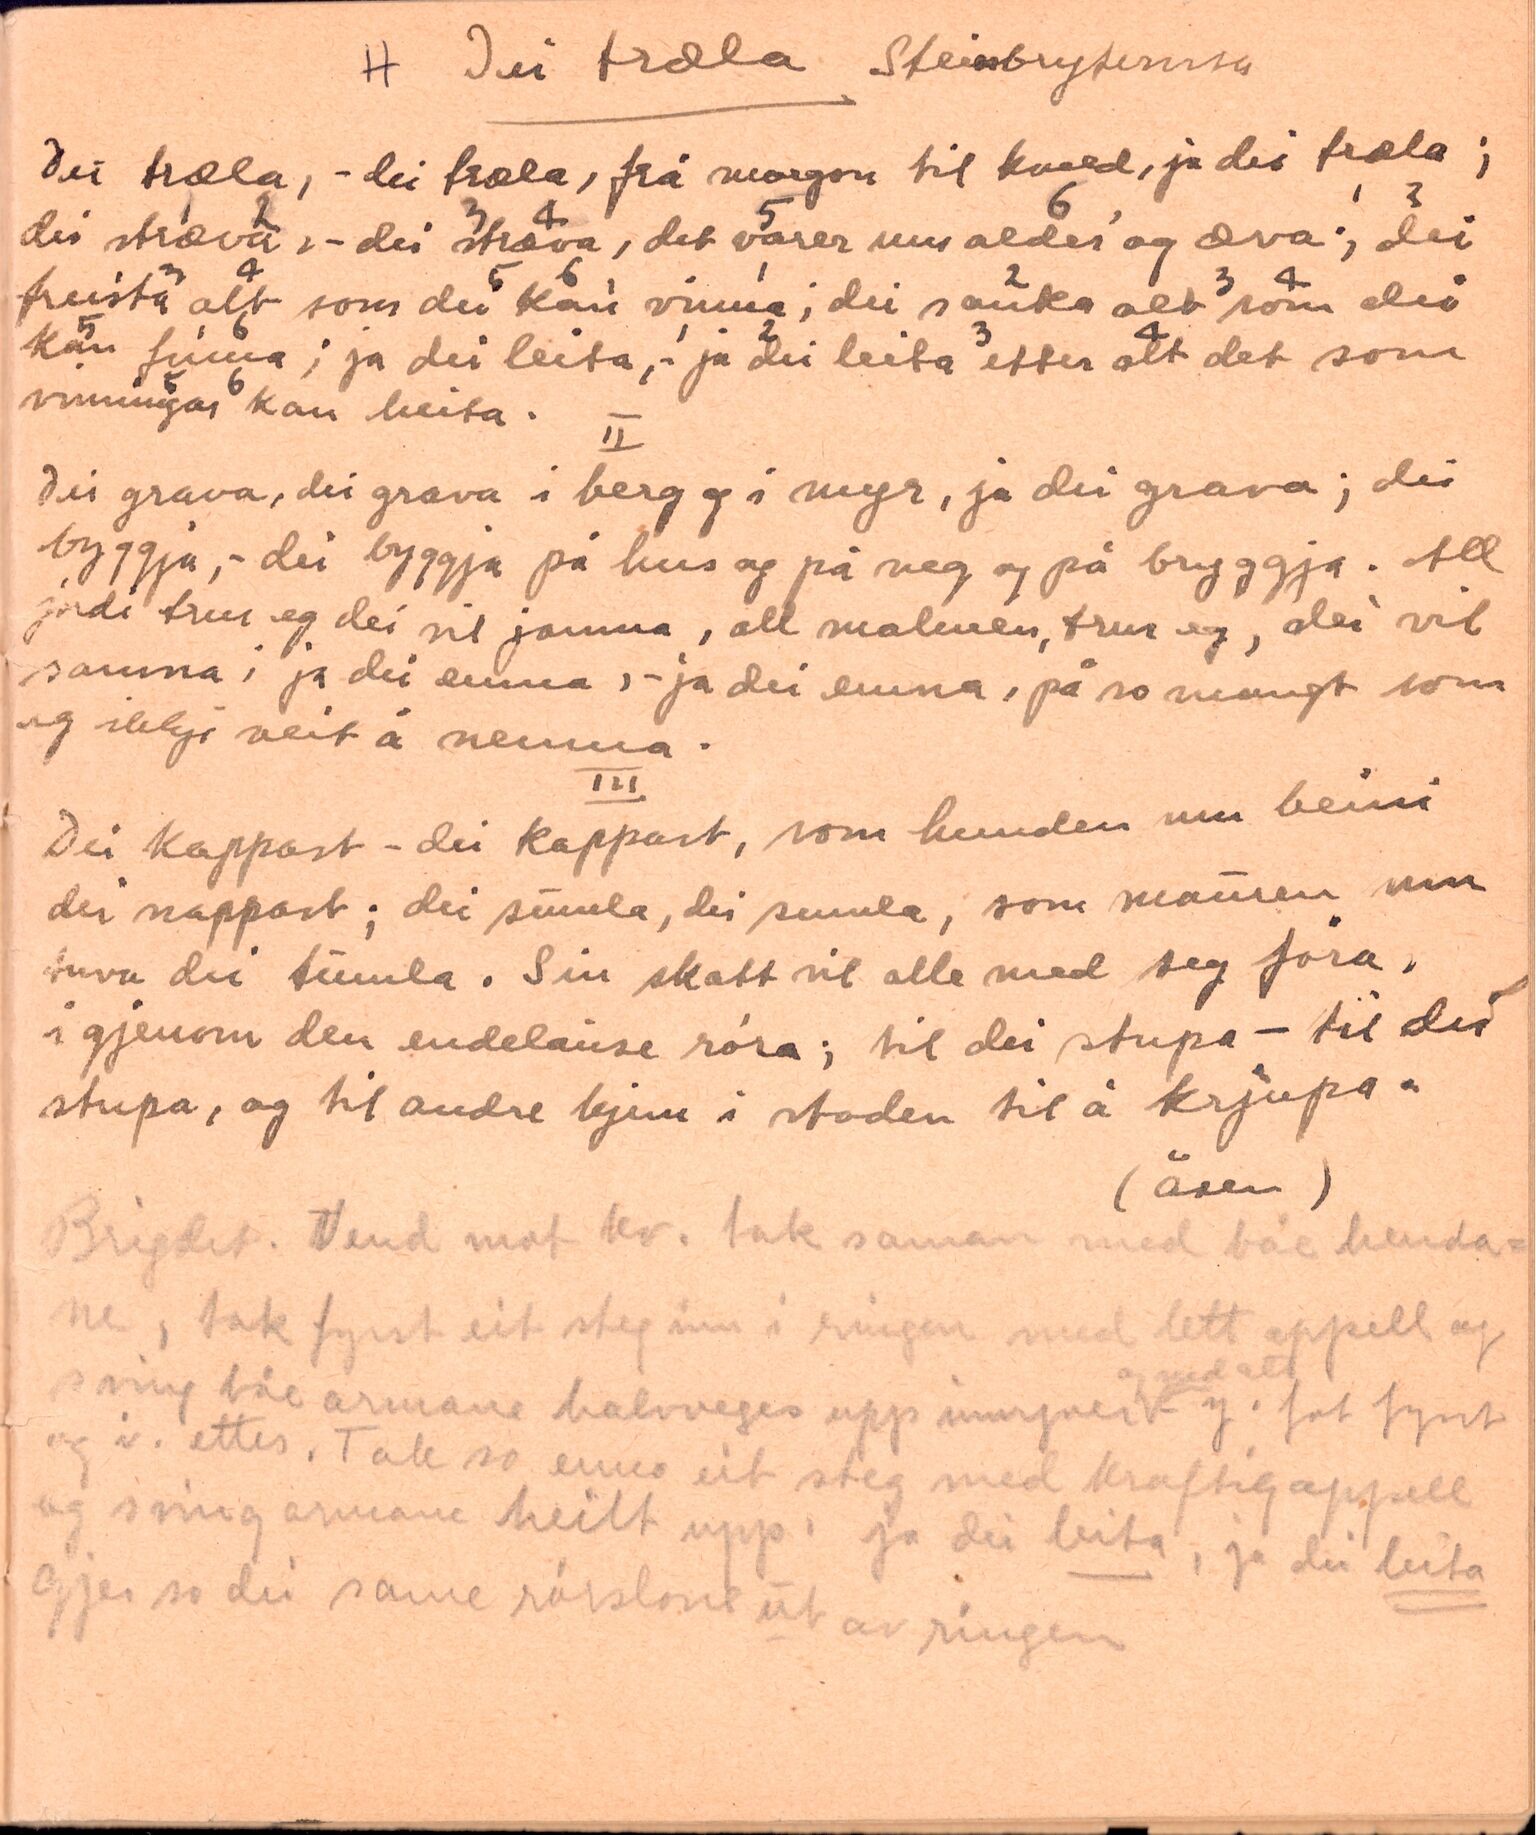 H Dei træla Steinbrytervisa
Dei træla, - dei træla, frå morgon til kveld, ja dei træla;
1 2 3 4 5 6 1 2
dei stræva, - dei stræva, det varer um alder og æva; dei
3 4 5 6 1 2 3 4
freista alt som dei kan vinna; dei sanka alt som dei
5 6 1 2 3 4
kan finna; ja dei leita, - ja dei leita etter alt det som
5 6
vinningar kan heita.
II
Dei grava, dei grava i berg og i myr, ja dei grava; dei
byggja, - dei byggja på hus og på veg og på bryggja. All
jordi trur eg dei vil jamna, all malmen, trur eg, dei vil
samna; ja dei emna, - ja dei emna, på so mangt som
eg ikkje veit å nemna.
III
Dei kappast - dei kappast, som hunden um beini
dei nappast; dei sumla, dei sumla, som mauren um
tuva dei tumla. Sin skatt vil alle med seg föra,
igjenom den endelause röra; til dei stupa - til dei
stupa, og til andre kjem i staden til å krjupa.
(Åsen)
Brigdet. Vend mot kv. tak saman med båe henda=
ne, tak fyrst eit steg inn i ringen med lett appell og
og med alt
sving båe armane halvveges upp h. fot fyrst
og v. etter. Tak so enno eit steg med kraftig appell
og sving armane heilt upp: ja dei leita, ja dei leita
Gjer so dei same rørslone ut av ringen